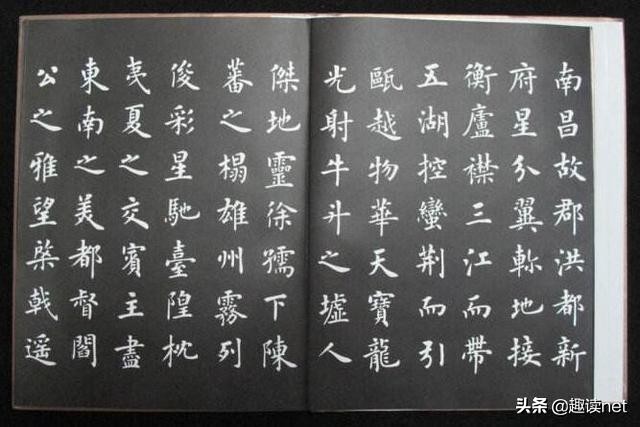 南昌故郡洪都新
府星分翼軫地接
衡廬襟三江而帶
五湖控蠻荊而引
甌越物華天寶龍
光射牛斗之墟人
傑地靈徐孺下陳
蕃之榻雄州霧列
俊彩星馳臺隍枕
夷夏之交賓主盡
東南之美都督閻
公之雅望棨戟遥
头条 @趣读net